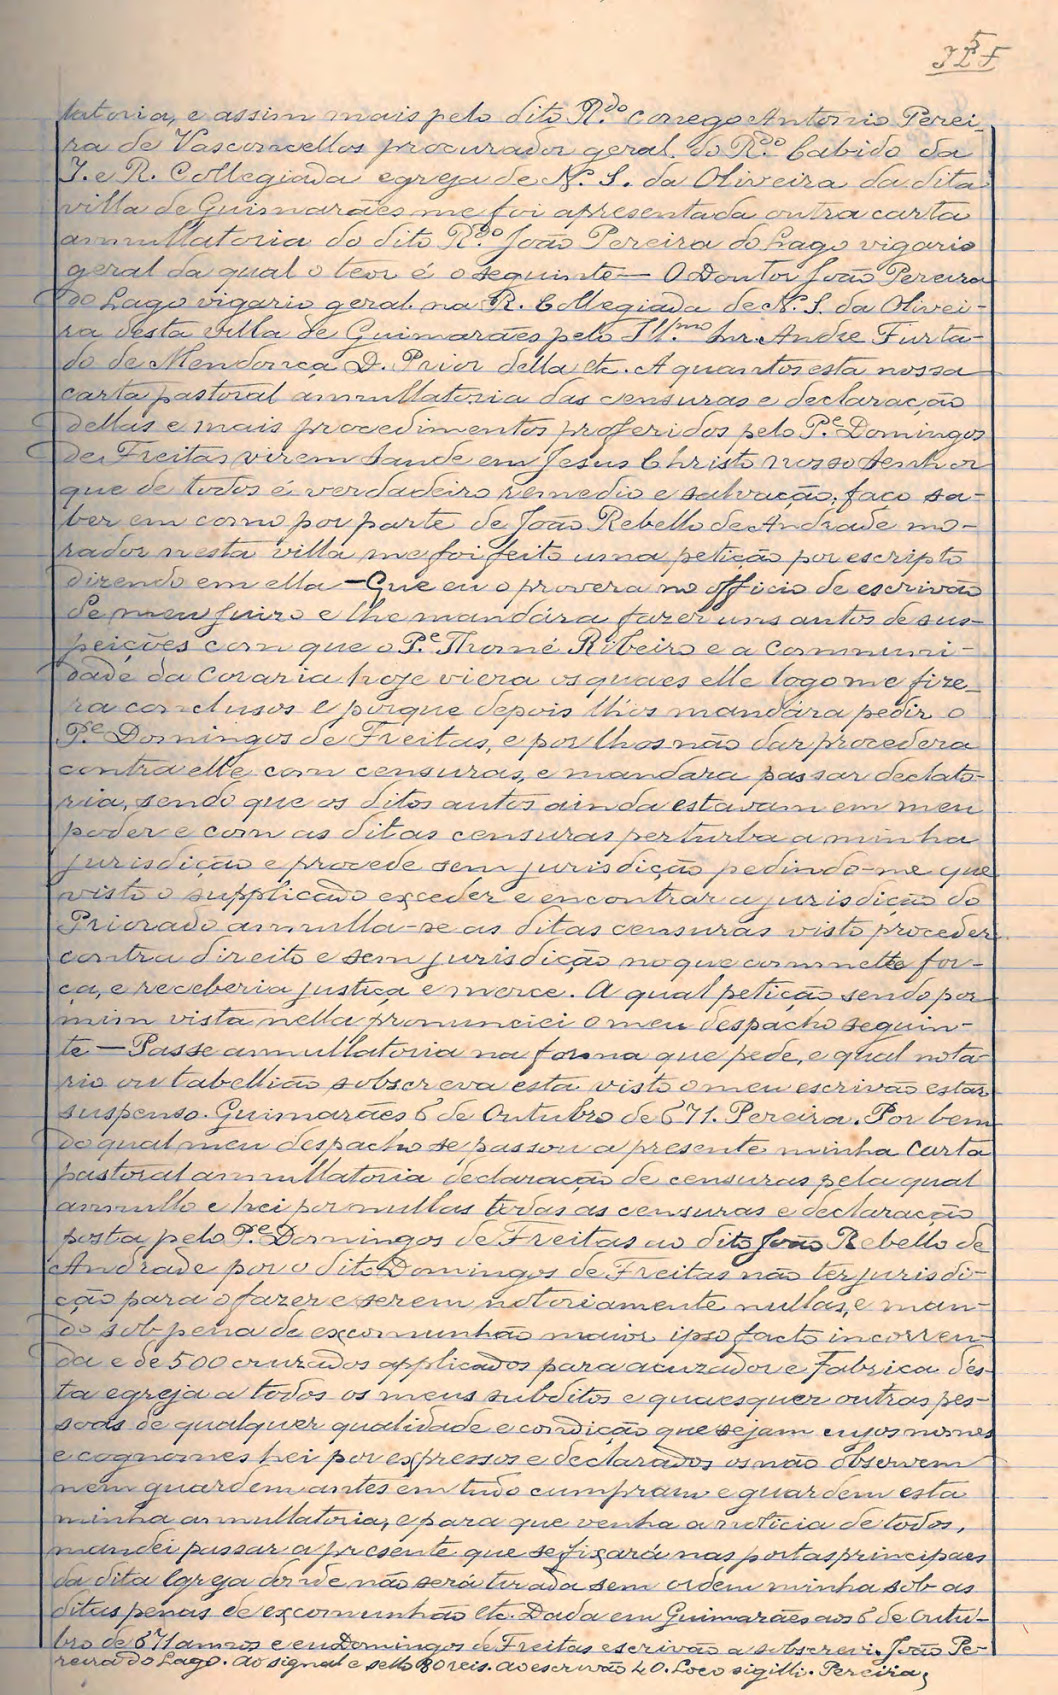 latoria, e assim mais pelo dito R.do conego Antonio Perei-
ra de Vasconcellos procurador geral do R.do Cabido da
I. e R. Collegiada egreja de N. S. da Oliveira da dita
villa de Guimarães me foi apresentada outra carta
annullatoria do dito R.do João Pereira do Lago vigario
geral da qual o teor é o seguinte — O Doutor João Pereira
do Lago vigario geral na R. Collegiada de N. S. da Olivei-
ra desta villa de Guimarães pelo Ill.mo Snr. Andre Furta-
do de Mendonça D. Prior della etc. A quantos esta nossa
carta pastoral annullatoria das censuras e declaração
dellas e mais procedimentos proferidos pelo P.e Domingos
de Freitas, virem saude em Jesus Christo nosso Senhor
que de todos é verdadeiro remedio e salvação; faço sa-
ber em como por parte de João Rebello de Andrade mo-
rador nesta villa me foi feito uma petição por escripto
dizendo em ella — Que eu o provera no officio de escrivão
de meu juizo e lhe mandára fazer uns autos de sus-
peições com que o P.e Thomé Ribeiro e a Communi-
dade da Coraria hoje viera os quaes elle logo me fize-
ra conclusos e porque depois lh'os mandára pedir o
P.e Domingos de Freitas, e por lhos não dar procedera
contra elle com censuras, e mandara passar declato-
ria, sendo que os ditos autos ainda estavam em meu
poder e com as ditas censuras perturba a minha
jurisdição e procede sem jurisdição pedindo-me que
visto o supplicado exceder e encontrar a jurisdição do
Priorado annulla-se as ditas censuras visto proceder
contra direito e sem jurisdição no que commette for-
ça, e receberia justiça e merce. A qual petição sendo por
mim vista nella pronunciei o meu despacho seguin-
te — Passe annullatoria na forma que pede, e qual nota-
rio ou tabellião subscreva esta visto o meu escrivão estar
suspenso. Guimarães 6 de Outubro de 671. Pereira. Por bem
do qual meu despacho se passou a presente minha carta
pastoral annullatoria declaração de censuras pela qual
annullo e hei por nullas todas as censuras e declaração
posta pelo P.e Domingos de Freitas ao dito João Rebello de
Andrade por o dito Domingos de Freitas não ter jurisdi-
ção para o fazer e serem notoriamente nullas, e man-
do sob pena de excomunhão maior ipso facto incorren-
da e de 500 cruzados applicados para acuzador e Fabrica dés-
ta egreja a todos os meus subditos e quaesquer outras pes-
soas de qualquer qualidade e condição que sejam cujos nomes
e cognomes hei por expressos e declarados os não observem
nem guardem antes em tudo cumpram e guardem esta
minha annullatoria, e para que venha a noticia de todos,
mandei passar a presente que se fixará nas portas principaes
da dita Igreja donde não será tirada sem ordem minha sob as
ditas penas de excomunhão etc. Dada em Guimarães aos 6 de Outu-
bro de 671 annos e eu Domingos de Freitas escrivão a subscrevi. João Pe-
reira do Lago. Ao signal e sello 80 reis. ao escrivão 40. Loco sigilli. Pereira,